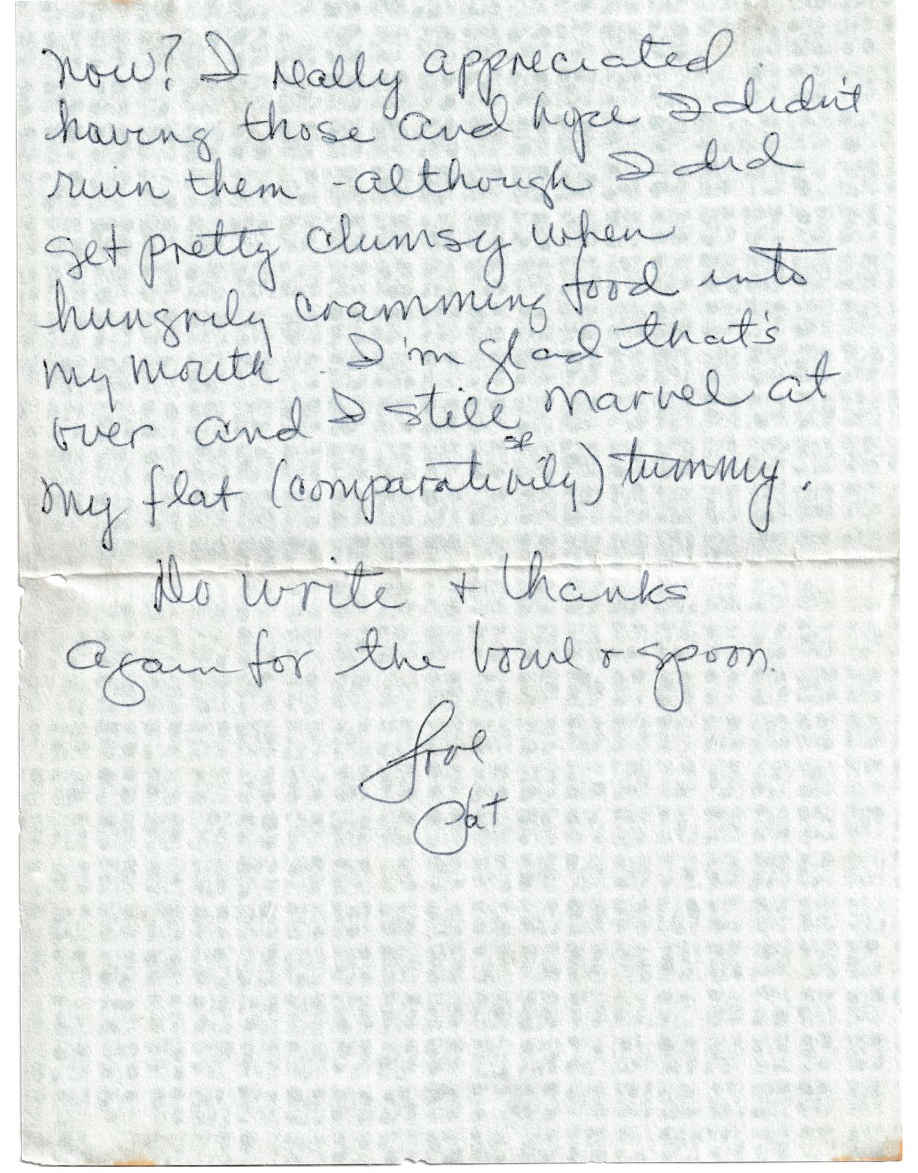 now? I really appreciated
having those and hope I didn't
ruin them - although I did
get pretty clumsy when
hungrily cramming food into
my mouth. I'm glad that's
over and I still marvel at
sp
my flat (comparativily) tummy.
Do write + thanks
again for the bowl & spoon.
Love
Pat